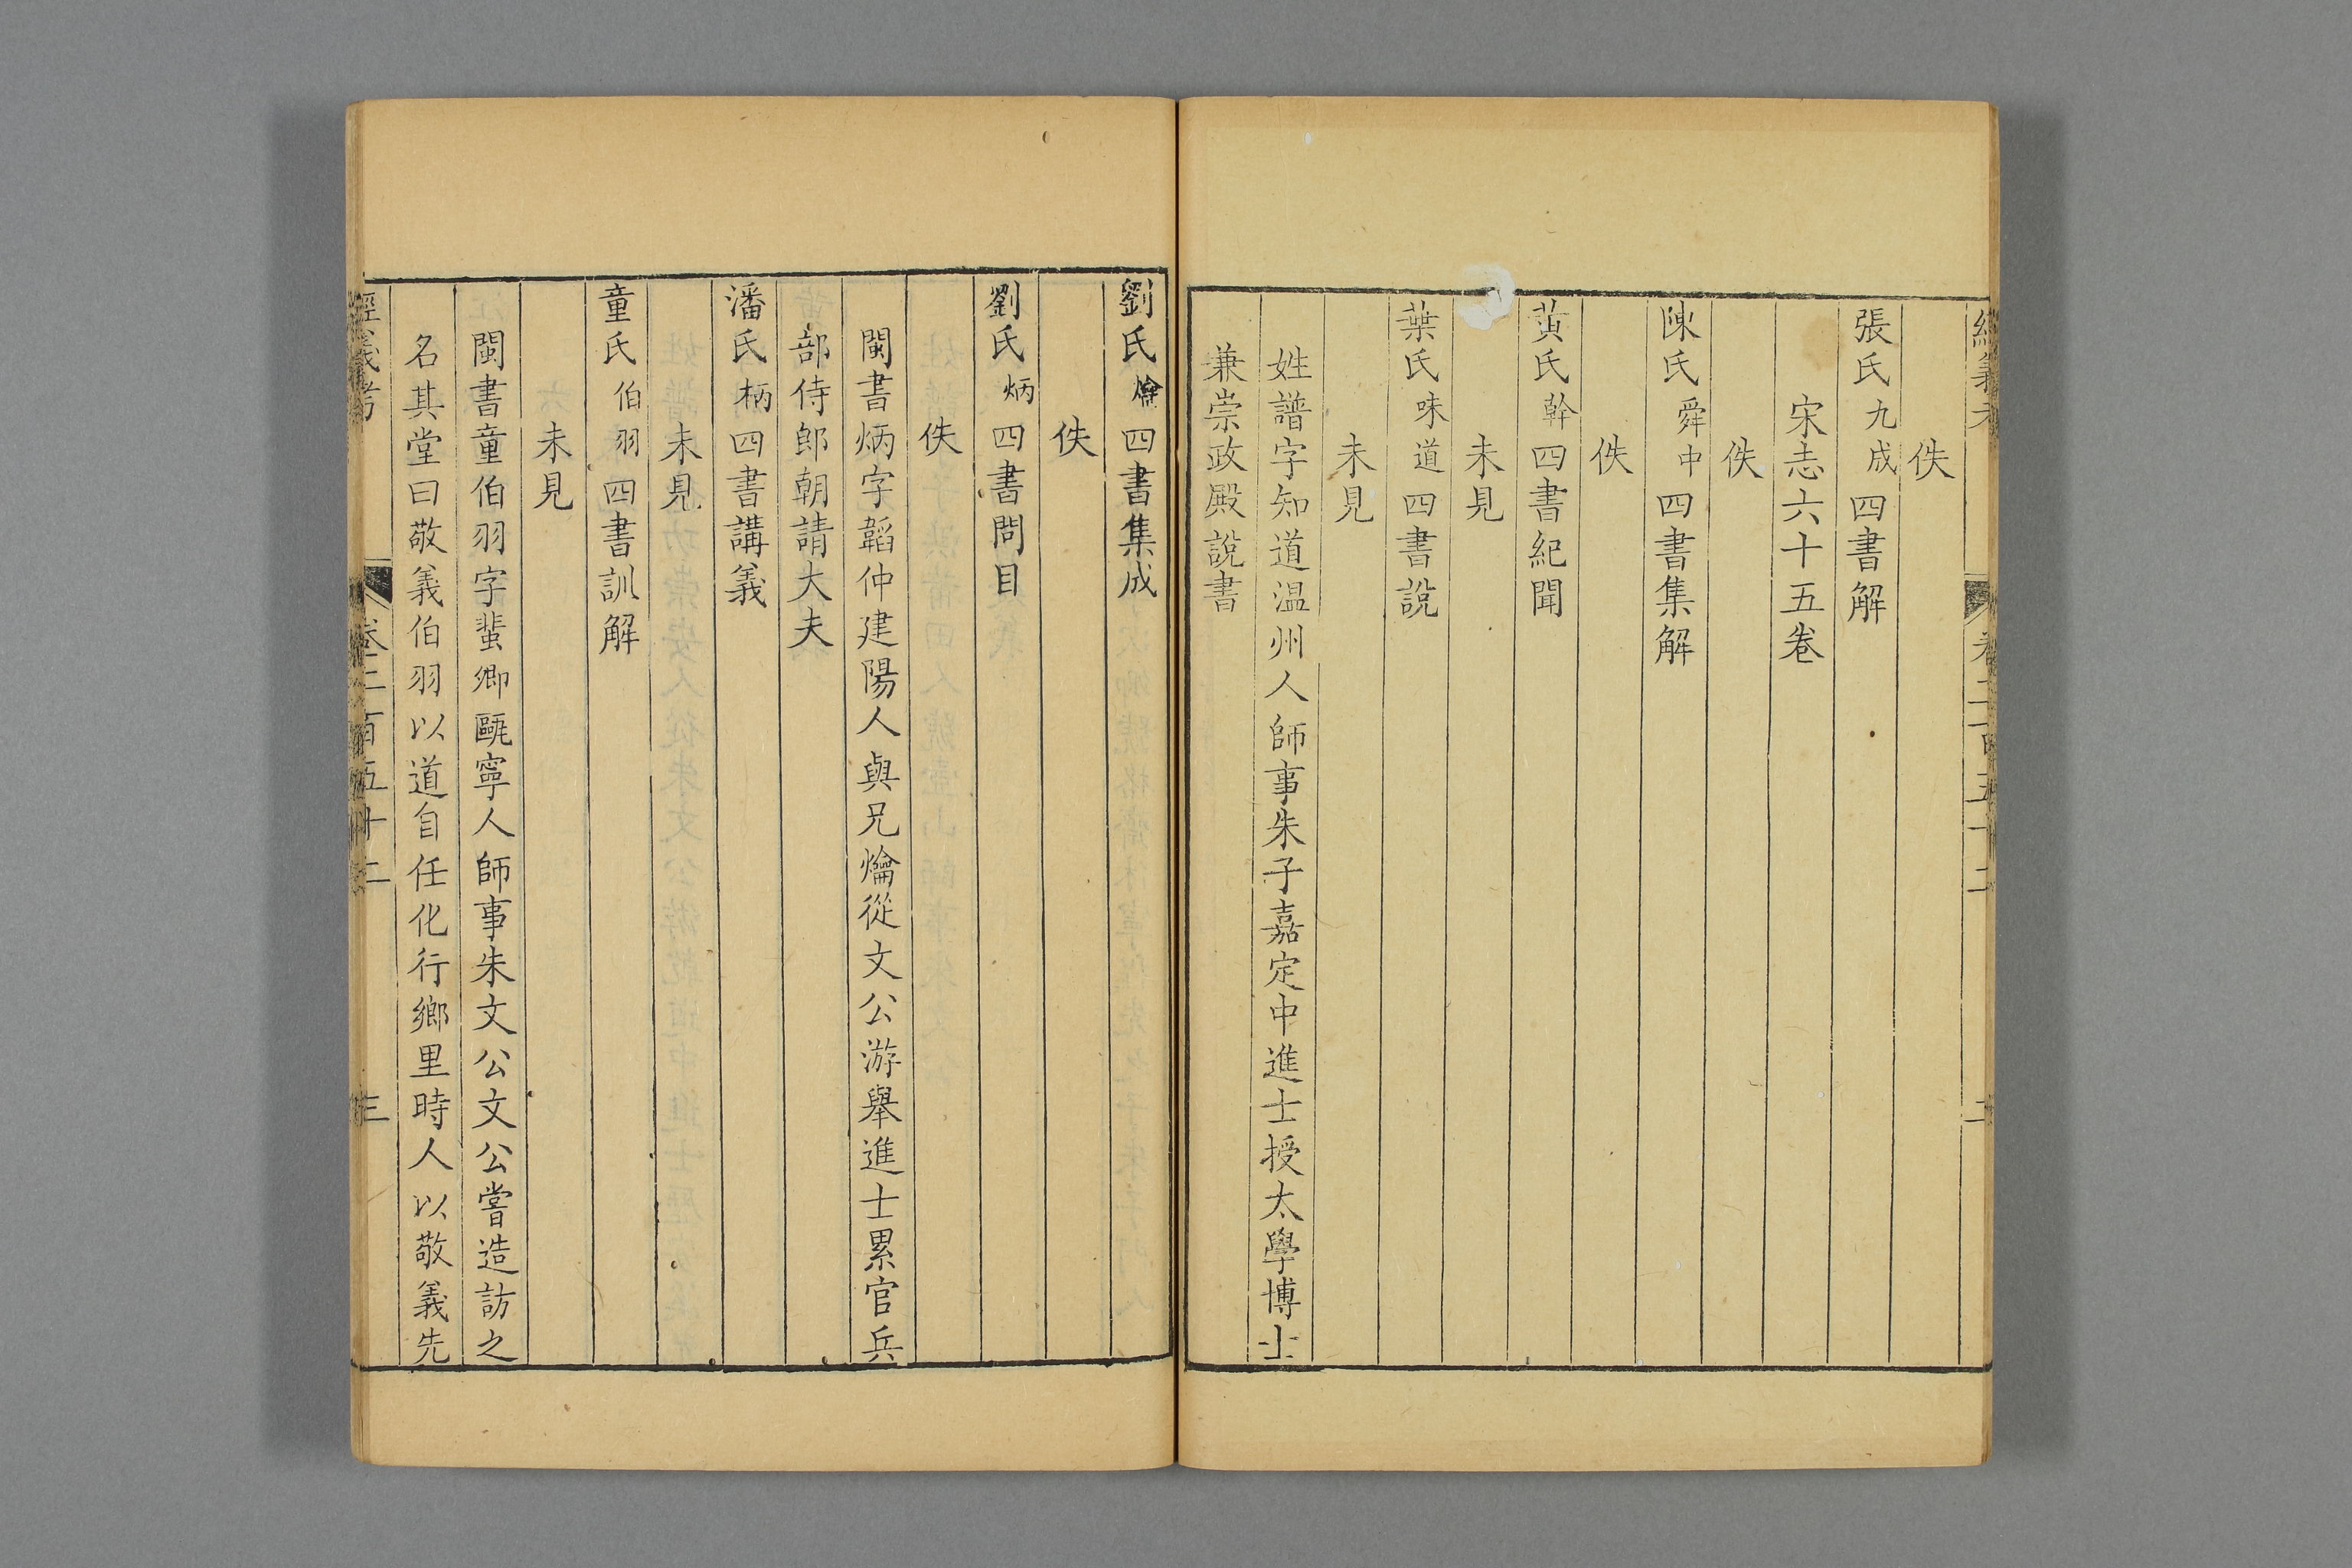 佚
張氏九成四書解
宋志六十五卷
佚
陳氏舜中四書集解
佚
黃氏幹四書紀聞
未見
葉氏味道四書說
未見
姓譜字知道温州人師事朱子嘉定中進士授太學博士
兼崇政殿說書
劉氏爚四書集成
佚
劉氏炳四書問目
佚
閩書炳字韜仲建陽人與兄爚從文公游舉進士累官兵
部侍郎朝請大夫
潘氏柄四書講義
未見
童氏伯羽四書訓解
未見
閩書童伯羽字蜚卿甌寧人師事朱文公文公嘗造訪之
名其堂曰敬義伯羽以道自任化行鄉里時人以敬義先
經義考 卷二百五十二 三